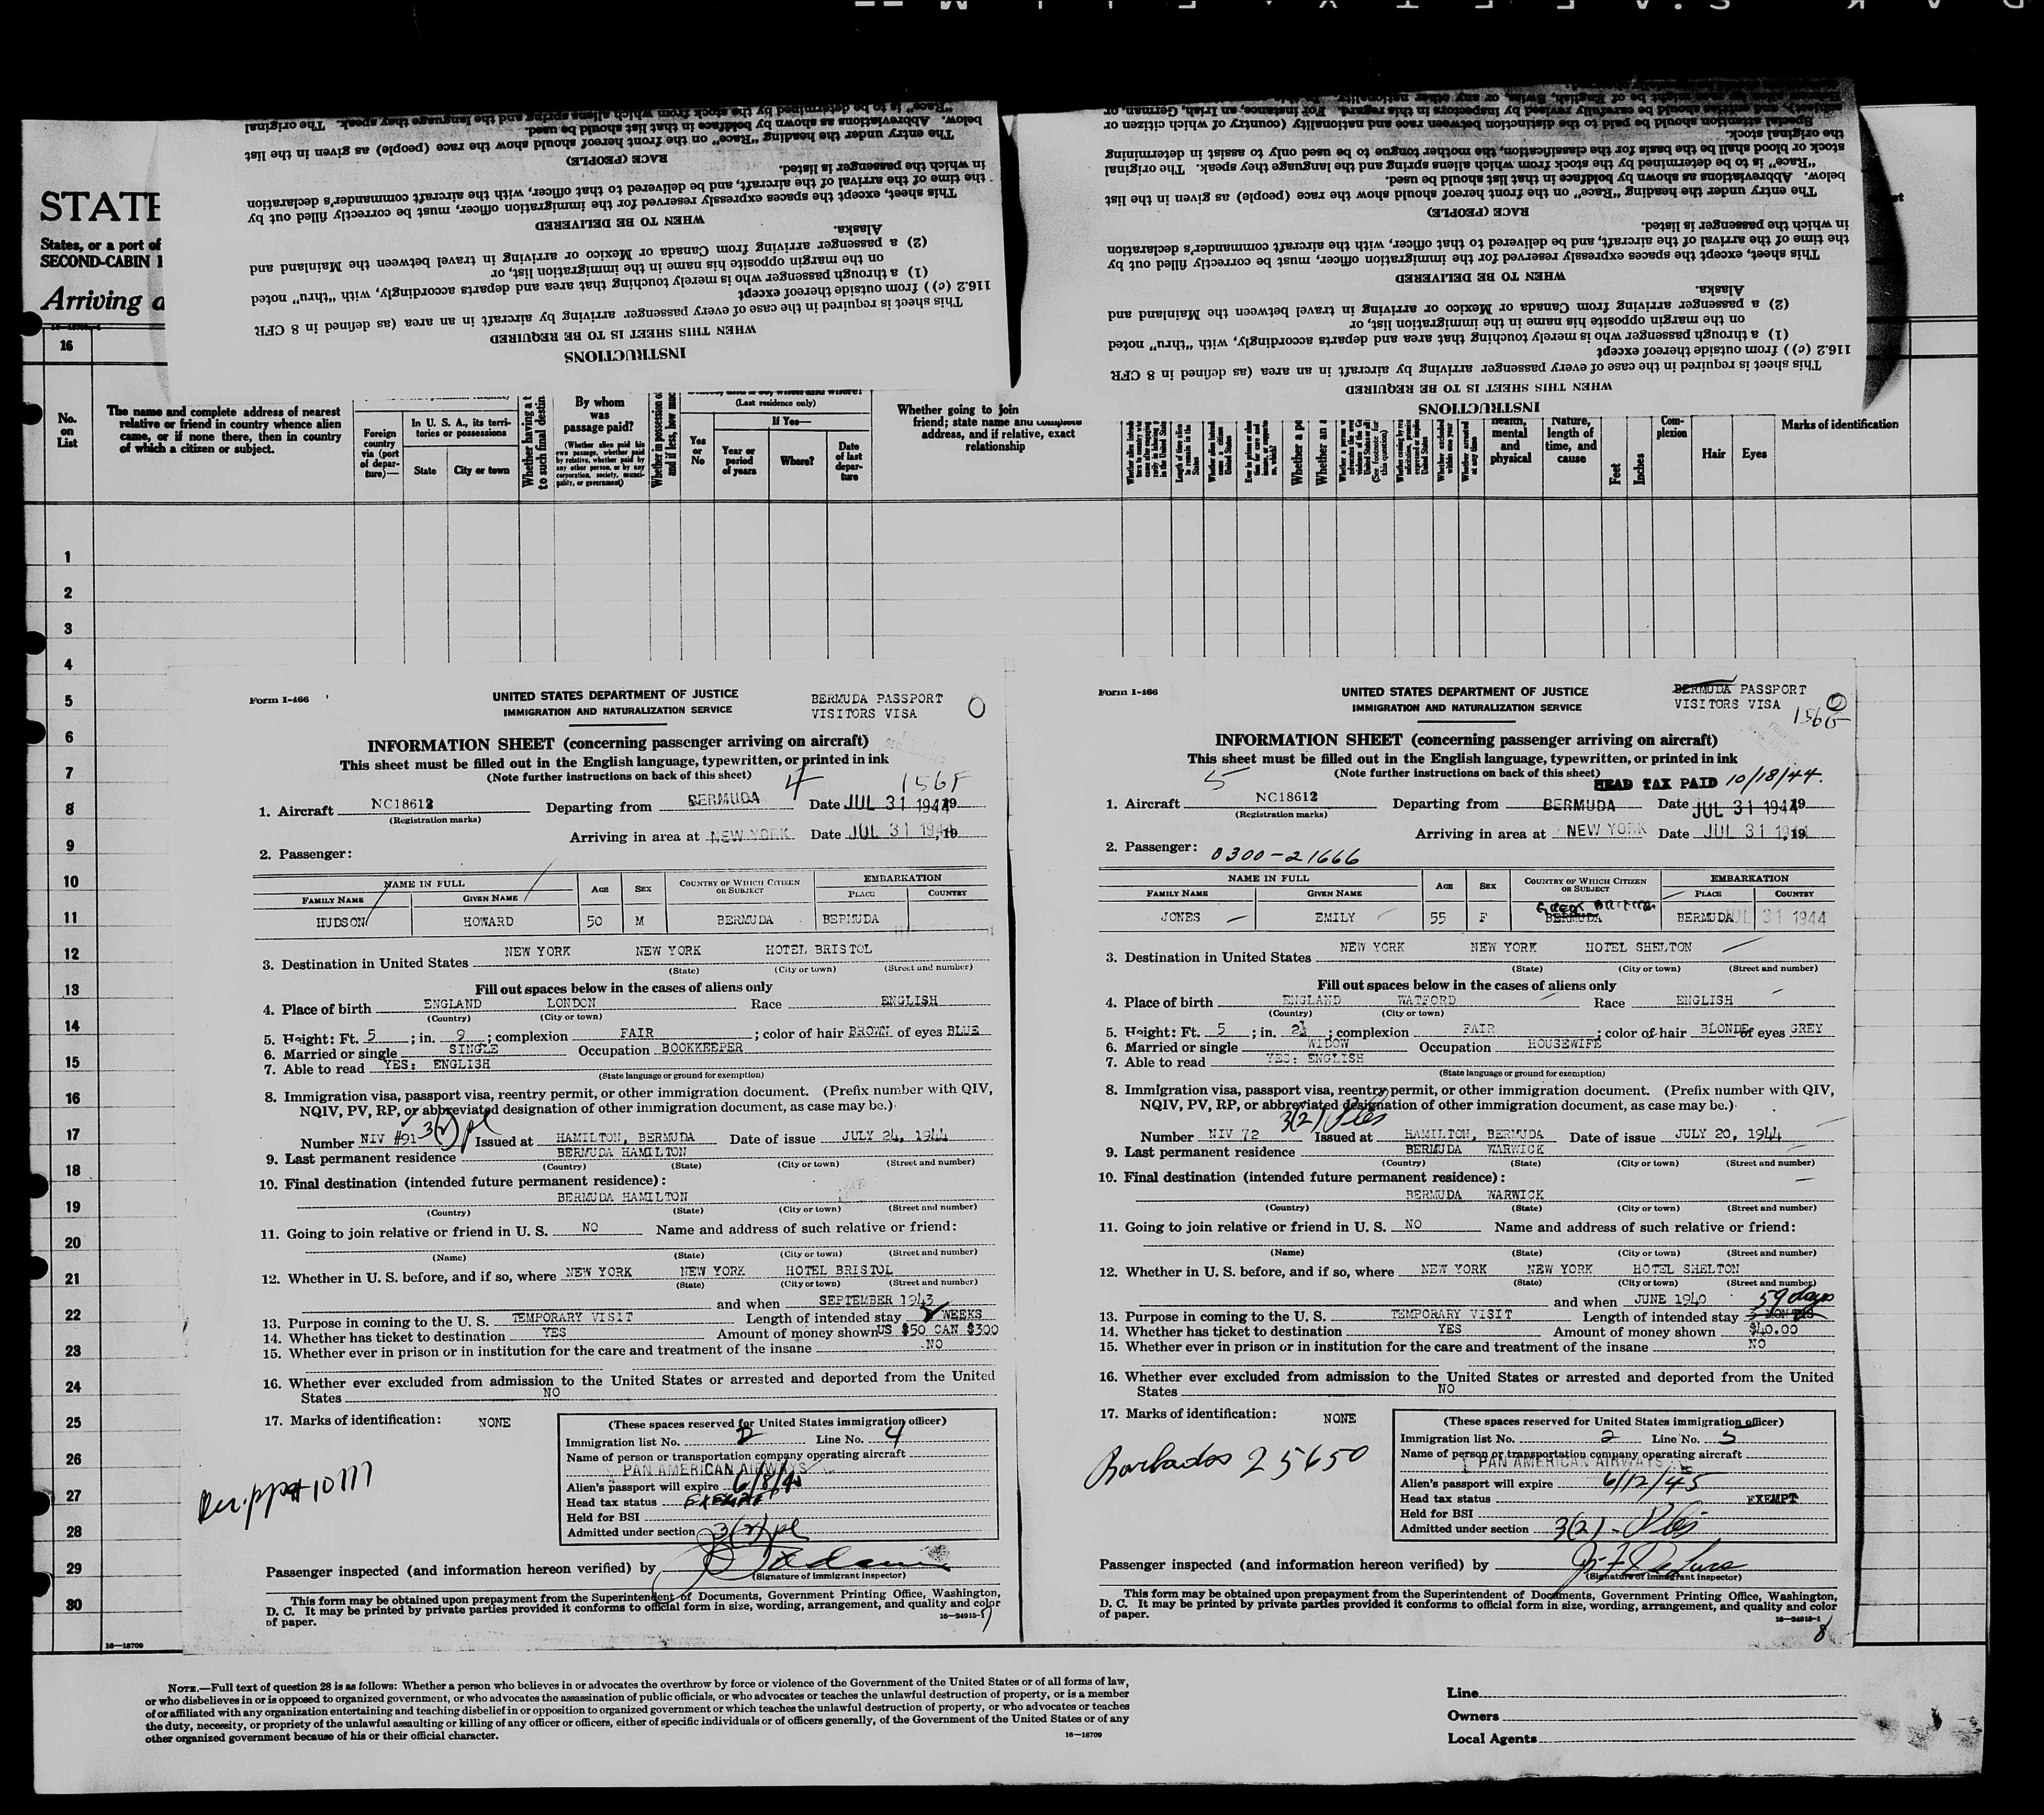 STATE
States, or a port of
SECOND-CABIN
Arriving
16
INSTRUCTIONS
WHEN THIS SHEET IS TO BE REQUIRED
This sheet is required in the case of every passenger arriving by aircraft in an area (as defined in 8 CFR
116.2 (c)) from outside thereof except
(1) a through passenger who is merely touching that area and departs accordingly, with "thru" noted
on the margin opposite his name in the immigration list, or
(2) a passenger arriving from Canada or Mexico or arriving in travel between the Mainland and
Alaska.
WHEN TO BE DELIVERED
This sheet, except the spaces expressly reserved for the immigration officer, must be correctly filled out by
the time of the arrival of the aircraft, and be delivered to that officer, with the aircraft commander's declaration
in which the passenger is listed.
RACE (PEOPLE)
The entry under the heading "Race" on the front hereof should show the race (people) as given in the list
below. Abbreviations as shown by boldface in that list should be used.
"Race" is to be determined by the stock from which aliens spring and the language they speak. The original
INSTRUCTIONS
WHEN THIS SHEET IS TO BE REQUIRED
This sheet is required in the case of every passenger arriving by aircraft in an area (as defined in 8 CFR
116.2 (c)) from outside thereof except
(1) a through passenger who is merely touching that area and departs accordingly, with "thru" noted
on the margin opposite his name in the immigration list, or
(2) a passenger arriving from Canada or Mexico or arriving in travel between the Mainland and
Alaska.
WHEN TO BE DELIVERED
This sheet, except the spaces expressly reserved for the immigration officer, must be correctly filled out by
the time of the arrival of the aircraft, and be delivered to that officer, with the aircraft commander's declaration
in which the passenger is listed.
RACE (PEOPLE)
The entry under the heading "Race" on the front hereof should show the race (people) as given in the list
below. Abbreviations as shown by boldface in that list should be used.
"Race" is to be determined by the stock from which aliens spring and the language they speak. The original
stock or blood shall be the basis for the classification, the mother tongue to be used only to assist in determining
the original stock.
Special attention should be paid to the distinction between race and nationality (country of which citizen or
subject), and entries should be carefully revised by inspectors in this regard. For instance, an Irish, German, or
No. on List
The name and complete address of nearest
relative or friend in country whence alien
came, or if none there, then in country
of which a citizen or subject.
Foreign country via (port of departure)—
In U. S. A., its territories or possessions
State
City or town
Whether having a t
to such final destin
By whom was passage paid?
(Whether alien paid his own passage, whether paid by relative, whether paid by any other person, or by any corporation, society, municipality, or government)
Whether in possession o
and if less, how muc
(Last residence only)
Yes or No
If Yes—
Year or period of years
Where?
Date of last departure
Whether going to join
friend; state name and complete
address, and if relative, exact
relationship
Whether a po
Whether an a
health, mental and physical
Nature, length of time, and cause
Feet
Inches
Complexion
Hair
Eyes
Marks of identification
1
2
3
4
5
6
7
8
9
10
11
12
13
14
15
16
17
18
19
20
21
22
23
24
25
26
27
28
29
30
16—18709
Form I-466
UNITED STATES DEPARTMENT OF JUSTICE
IMMIGRATION AND NATURALIZATION SERVICE
BERMUDA PASSPORT
VISITORS VISA
0
INFORMATION SHEET (concerning passenger arriving on aircraft)
This sheet must be filled out in the English language, typewritten, or printed in ink
(Note further instructions on back of this sheet)
4
156F
1. Aircraft NC18612 Departing from BERMUDA Date JUL 31 1944 19
(Registration marks)
Arriving in area at NEW YORK Date JUL 31 1944, 19
2. Passenger:
NAME IN FULL AGE SEX COUNTRY OF WHICH CITIZEN OR SUBJECT EMBARKATION
FAMILY NAME GIVEN NAME PLACE COUNTRY
HUDSON HOWARD 50 M BERMUDA BERMUDA
3. Destination in United States NEW YORK NEW YORK HOTEL BRISTOL
(State) (City or town) (Street and number)
Fill out spaces below in the cases of aliens only
4. Place of birth ENGLAND LONDON Race ENGLISH
(Country) (City or town)
5. Height: Ft. 5 ; in. 9 ; complexion FAIR ; color of hair BROWN of eyes BLUE
6. Married or single SINGLE Occupation BOOKKEEPER
7. Able to read YES: ENGLISH
(State language or ground for exemption)
8. Immigration visa, passport visa, reentry permit, or other immigration document. (Prefix number with QIV,
NQIV, PV, RP, or abbreviated designation of other immigration document, as case may be.)
3(2) pl
Number NIV #91 Issued at HAMILTON, BERMUDA Date of issue JULY 24, 1944
9. Last permanent residence BERMUDA HAMILTON
(Country) (State) (City or town) (Street and number)
10. Final destination (intended future permanent residence):
BERMUDA HAMILTON
(Country) (State) (City or town) (Street and number)
11. Going to join relative or friend in U. S. NO Name and address of such relative or friend:
(Name) (State) (City or town) (Street and number)
12. Whether in U. S. before, and if so, where NEW YORK NEW YORK HOTEL BRISTOL
(State) (City or town) (Street and number)
and when SEPTEMBER 1943
13. Purpose in coming to the U. S. TEMPORARY VISIT Length of intended stay 2 WEEKS
14. Whether has ticket to destination YES Amount of money shown US $50 CAN $300
15. Whether ever in prison or in institution for the care and treatment of the insane NO
16. Whether ever excluded from admission to the United States or arrested and deported from the United
States NO
17. Marks of identification: NONE
(These spaces reserved for United States immigration officer)
Immigration list No. 2 Line No. 4
Name of person or transportation company operating aircraft
PAN AMERICAN AIRWAYS
Alien's passport will expire
Head tax status EXEMPT
Held for BSI
Admitted under section 3(2) pl
Passenger inspected (and information hereon verified) by
(Signature of immigrant inspector)
This form may be obtained upon prepayment from the Superintendent of Documents, Government Printing Office, Washington,
D. C. It may be printed by private parties provided it conforms to official form in size, wording, arrangement, and quality and color
of paper.
16—24915-1
Form I-466
UNITED STATES DEPARTMENT OF JUSTICE
IMMIGRATION AND NATURALIZATION SERVICE
BERMUDA PASSPORT
VISITORS VISA
INFORMATION SHEET (concerning passenger arriving on aircraft)
This sheet must be filled out in the English language, typewritten, or printed in ink
(Note further instructions on back of this sheet)
5
HEAD TAX PAID 10/18/44.
1. Aircraft NC18612 Departing from BERMUDA Date JUL 31 1944 19
(Registration marks)
Arriving in area at NEW YORK Date JUL 31 1944, 19
2. Passenger: 0300-21666
NAME IN FULL AGE SEX COUNTRY OF WHICH CITIZEN OR SUBJECT EMBARKATION
FAMILY NAME GIVEN NAME PLACE COUNTRY
JONES EMILY 55 F BERMUDA BERMUDA JUL 31 1944
3. Destination in United States NEW YORK NEW YORK HOTEL SHELTON
(State) (City or town) (Street and number)
Fill out spaces below in the cases of aliens only
4. Place of birth ENGLAND WATFORD Race ENGLISH
(Country) (City or town)
5. Height: Ft. 5 ; in. 2½ ; complexion FAIR ; color of hair BLONDE of eyes GREY
6. Married or single WIDOW Occupation HOUSEWIFE
7. Able to read YES: ENGLISH
(State language or ground for exemption)
8. Immigration visa, passport visa, reentry permit, or other immigration document. (Prefix number with QIV,
NQIV, PV, RP, or abbreviated designation of other immigration document, as case may be.)
3(2)
Number NIV 72 Issued at HAMILTON, BERMUDA Date of issue JULY 20, 1944
9. Last permanent residence BERMUDA WARWICK
(Country) (State) (City or town) (Street and number)
10. Final destination (intended future permanent residence):
BERMUDA WARWICK
(Country) (State) (City or town) (Street and number)
11. Going to join relative or friend in U. S. NO Name and address of such relative or friend:
(Name) (State) (City or town) (Street and number)
12. Whether in U. S. before, and if so, where NEW YORK NEW YORK HOTEL SHELTON
(State) (City or town) (Street and number)
and when JUNE 1940 59 days
13. Purpose in coming to the U. S. TEMPORARY VISIT Length of intended stay 3 MONTHS
14. Whether has ticket to destination YES Amount of money shown $40.00
15. Whether ever in prison or in institution for the care and treatment of the insane NO
16. Whether ever excluded from admission to the United States or arrested and deported from the United
States NO
17. Marks of identification: NONE
Barbados 25650
(These spaces reserved for United States immigration officer)
Immigration list No. 2 Line No. 5
Name of person or transportation company operating aircraft
PAN AMERICAN AIRWAYS
Alien's passport will expire 6/12/45
Head tax status EXEMPT
Held for BSI
Admitted under section 3(2)
Passenger inspected (and information hereon verified) by
(Signature of immigrant inspector)
This form may be obtained upon prepayment from the Superintendent of Documents, Government Printing Office, Washington,
D. C. It may be printed by private parties provided it conforms to official form in size, wording, arrangement, and quality and color
of paper.
16—24915-1
8
NOTE.—Full text of question 28 is as follows: Whether a person who believes in or advocates the overthrow by force or violence of the Government of the United States or of all forms of law,
or who disbelieves in or is opposed to organized government, or who advocates the assassination of public officials, or who advocates or teaches the unlawful destruction of property, or is a member
of or affiliated with any organization entertaining and teaching disbelief in or opposition to organized government or which teaches the unlawful destruction of property, or who advocates or teaches
the duty, necessity, or propriety of the unlawful assaulting or killing of any officer or officers, either of specific individuals or of officers generally, of the Government of the United States or of any
other organized government because of his or their official character.
16—18709
Line
Owners
Local Agents